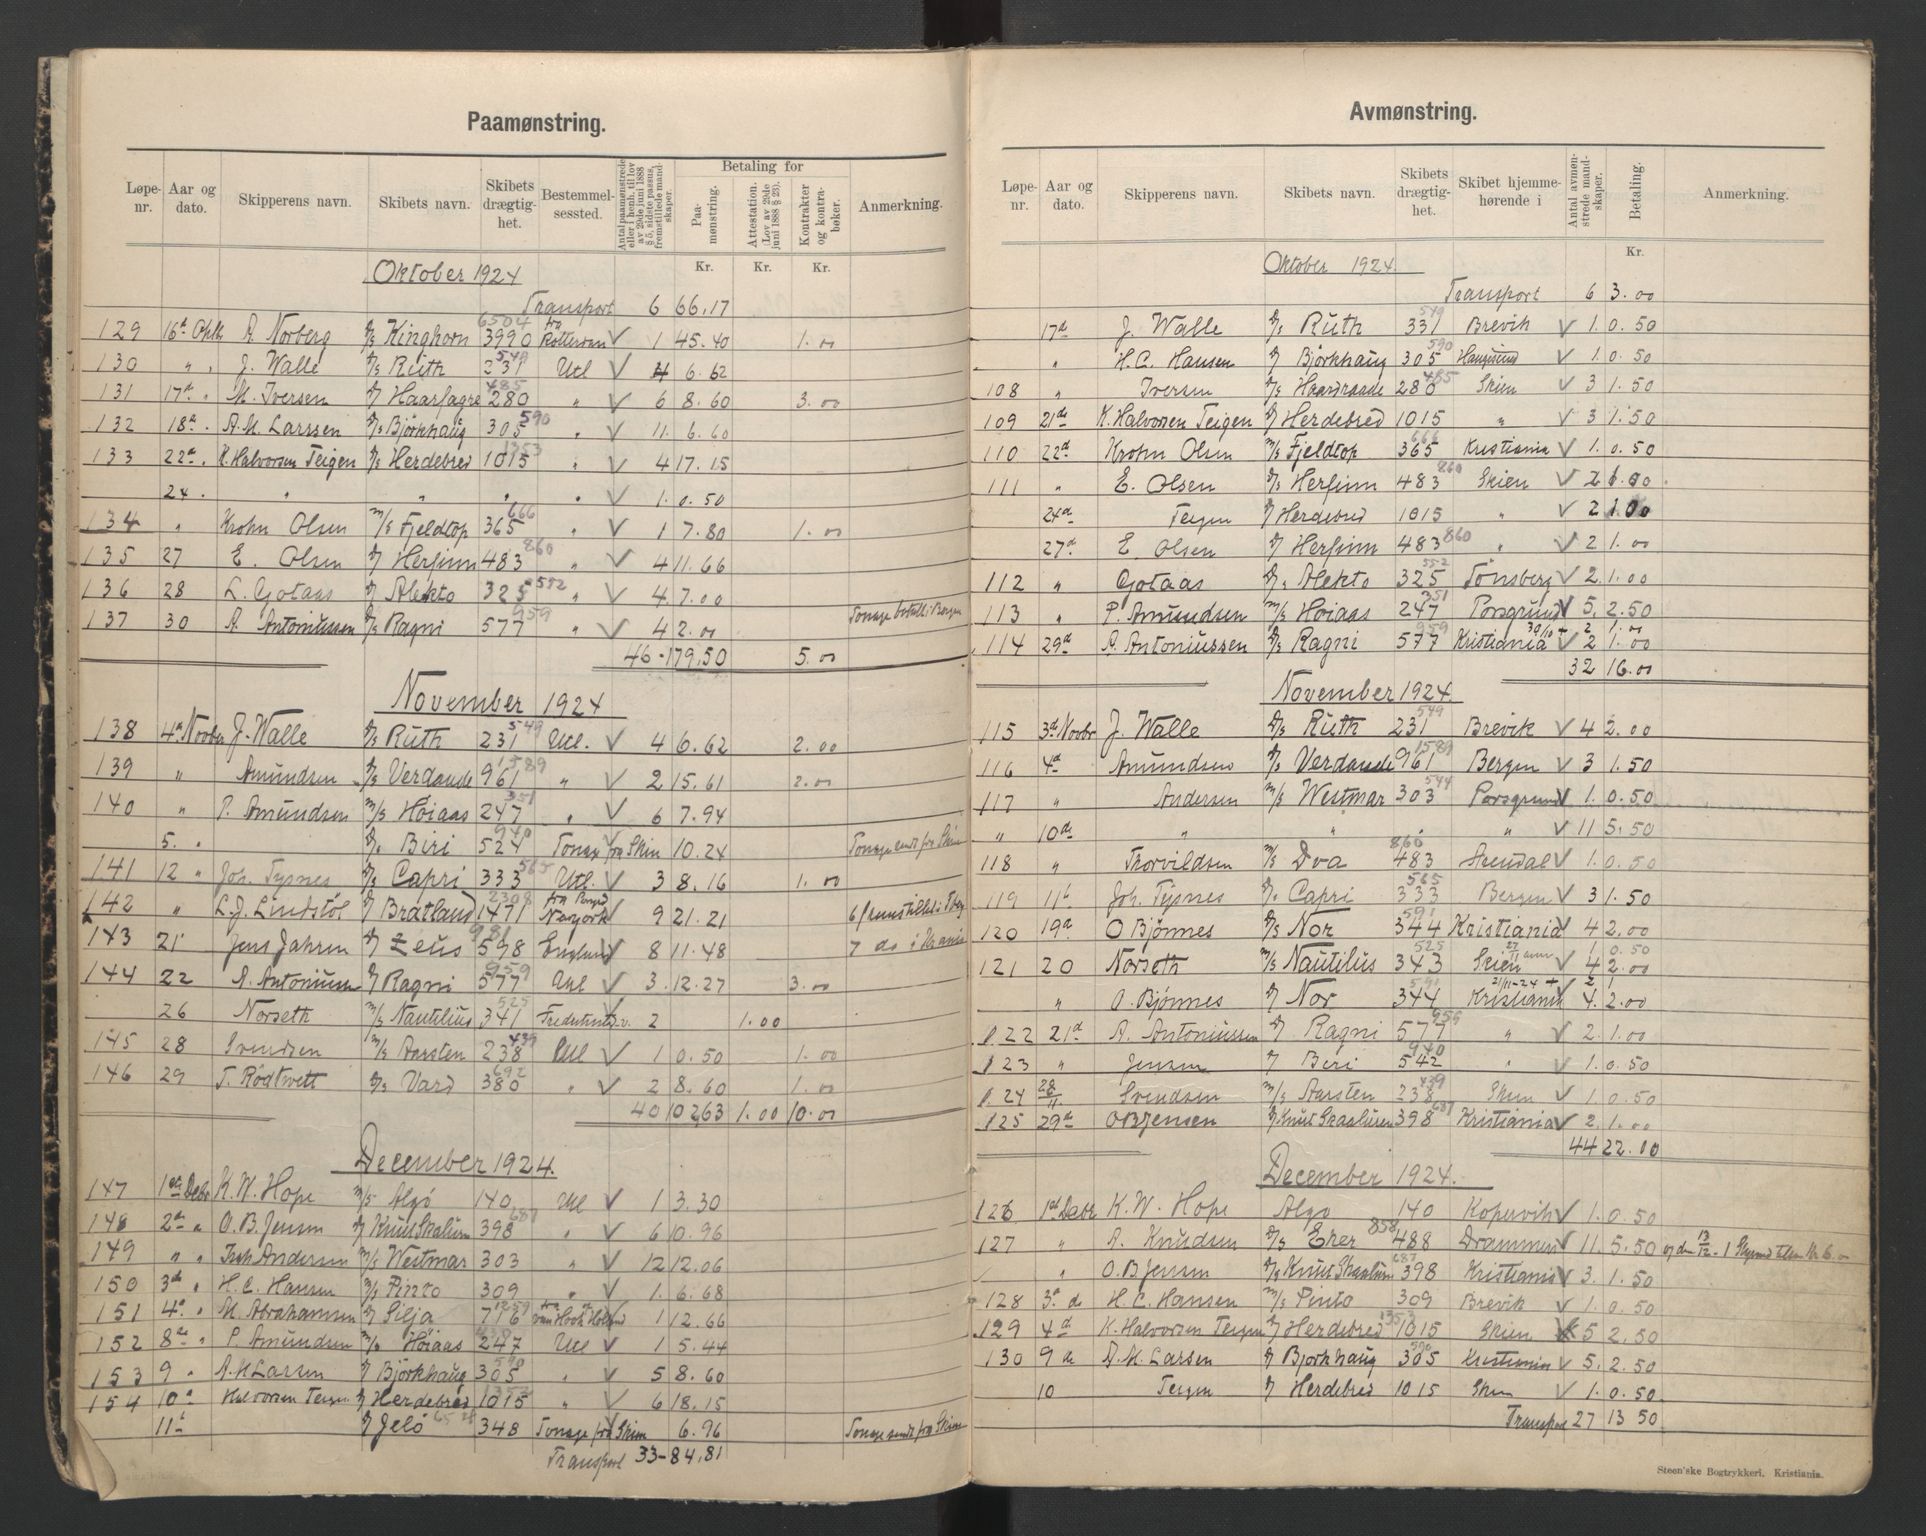 Paamønstring.
Løpe-nr. Aar og dato. Skipperens navn. Skibets navn. Skibets drægtig-het. Bestemmel-sessted. Antal paamønstrede eller i henh. til lov av 29de juni 1888 § 5, sidste passus, fremstillede mand-skaper. Betaling for Paa-mønstring. Attestation. (Lov av 29de juni 1888 § 23). Kontrakter og kontra-bøker. Anmerkning.
Kr. Kr. Kr.
Oktober 1924
Transport 6 66.17
129 16de Oktb A. Norberg s/s Kinghorn 6504 3990 fra Rotterdam V 1 45.40 1.00
130 " " J. Walle s/s Ruth 549 231 Utl V 4 6.62
131 17de " M. Iversen s/s Haarfagre 485 280 " V 6 8.60 3.00
132 18de " A.M. Larssen s/s Bjørkhaug 590 305 " V 11. 6.60
133 22de " K. Halvorsen Teigen s/s Herdebred 1353 1015 " V 4 17.15
24 " " " " " V 1. 0.50
134 " Krohn Olsen m/s Fjeldtop 666 365 " V 1 7.80 1.00
135 27 E. Olsen s/s Herfinn 860 483 " V 4 11.66
136 28 L. Gotaas s/s Alekto 552 325 " V 4. 7.00
137 30 A. Antoniussen s/s Ragni 959 577 " V 4 2.00 Tonage betalt i Bergen
46 - 179,50 5.00
November 1924
138 4de Novbr J. Walle s/s Ruth 549 231 Utl. V 4 6.62 2.00
139 " Amundsen s/s Verdande 1589 961 " V 2 15.61 2.00
140 " P. Amundsen m/s Høiaas 351 247 " V 6 7.94
5. " s/s Biri 940 524 Tonage fra Skien 10.24 Tonage sendt fra Skien
141 12 " Joh. Tysnes s/s Capri 565 333 Utl. V 3 8.16 1.00
142 " L.J. Lindstøl s/s Bratland 2308 1471 Newyork V 9 21.21
143 21 Jens Jahren s/s Zeus 981 598 England V 8 11.48
144 22 A. Antoniussen s/s Ragni 959 577 Utl V 3. 12.27 3.00
26 Norseth m/s Nautilius 525 341 2 1.00
145 28 Svendsen m/s Aarsten 439 238 Utl V 1 0.50 1.00
146 29 T. Rødtvett s/s Vard 692 380 " V 2 8.60 1.00
40 10263 1.00 10.00
December 1924.
147 1ste Debr K.W. Hope m/s Algø 140 Utl V 1 3.30
148 2de " O.B. Jensen s/s Knut Skaalurn 687 398 " V 6 10.96
149 " " Andersen m/s Westmar 303 " V 12 12.06
150 3de " H.C. Hansen m/s Pinto 309 " V 1. 6.68
151 4de " M. Abrahamsen s/s Silja 1259 776 1 12.66
152 8de " P. Amundsen m/s Høiaas 247 Utl V 1 5.44
153 9 " A.M Larsen s/s Bjørkhaug 590 305 " V 5 8.60
154 10de Halvorsen Teigen s/s Herdebred 1353 1015 " V 6 18.15
11te s/s Jelø 348 Tonage fra Skien 6.96 Tonage sendt fra Skien
Transport 33-84,81
Avmønstring.
Løpe-nr. Aar og dato. Skipperens navn. Skibets navn. Skibets drægtig-het. Skibet hjemme-hørende i Antal avmøn-strede mand-skaper. Betaling. Anmerkning.
Kr.
Oktober 1924.
Transport 6 3.00
17de J. Walle s/s Ruth 549 331 Brevik V 1. 0.50
" H.C. Hansen s/s Bjørkhaug 590 305 Haugesund V 1. 0.50
108 " Iversen s/s Haardraade 485 280 Skien V 3 1.50
109 21de K. Halvorsen Teigen s/s Herdebred 1015 " V 3 1.50
110 22de Krohn Olsen m/s Fjeldtop 666 365 Kristiania V 1. 0.50
111 " E. Olsen s/s Herfinn 860 483 Skien V 2 1.00
24de Teigen s/s Herdebred 1015 " V 2 1.00
27de E. Olsen s/s Herfinn 483 860 " V 2 1.00
112 " Gotaas s/s Alekto 552 325 Tønsberg V 2. 1.00
113 " P. Amundsen m/s Høiaas 351 247 Porsgrund V 5. 2.50
30/10 + 2 1.00
114 29de A. Antoniussen s/s Ragni 959 577 Kristiania V 2 1.00
32 16.00
November 1924.
115 3de Novbr J. Walle s/s Ruth 549 231 Brevik V 4 2.00
116 4de Amundsen s/s Verdande 1589 961 Bergen V 3 1.50
117 " Andersen m/s Westmar 544 303 Porsgrund V 1. 0.50
" 10de " " " " V 11 5.50
118 " Thorvildsen m/s Dva 860 483 V 1. 0.50
119 11te Joh. Tysnes s/s Capri 565 333 Bergen V 3 1.50
120 19de O Bjønnes s/s Nor 591 344 Kristiania V 4 2.00
1 0.50
121 20 Norseth m/s Nautilus 525 343 Skien V 4 2.00
21/11-24 + 2 1
" O. Bjønnes s/s Nor 591 344 Kristiania V 4. 2.00
122 21de A. Antoniussen s/s Ragni 959 577 " V 2. 1.00
123 " Jensen s/s Biri 940 542 " V 1. 0.50
124 28/11. Svendsen m/s Aarsten 439 238 Skien V 1 0.50
125 29de O B Jensen s/s Knut Skaaluren 687 398 Kristiania V 2. 1.00
44 22.00
December 1924.
126 1ste Debr K.W. Hope Algø 140 Kopervik V 1. 0.50
127 " A. Knudsen s/s Eker 858 488 Drammen V 11. 5.50
" O.B Jensen s/s Knut Skaalurn 687 398 Kristiania V 3. 1.50
128 3de H.C. Hansen m/s Pinto 309 Brevik V 1. 0.50
129 4de K. Halvorsen Teigen s/s Herdebred 1353 1015 Skien V 5 2.50
130 9de A.M. Larsen s/s Bjørkhaug 590 305 Kristiania V 5. 2.50
10 Teigen s/s Herdebred 1015 Skien V 1. 0.50
Transport 27 13 50
Steen'ske Bogtrykkeri, Kristiania.